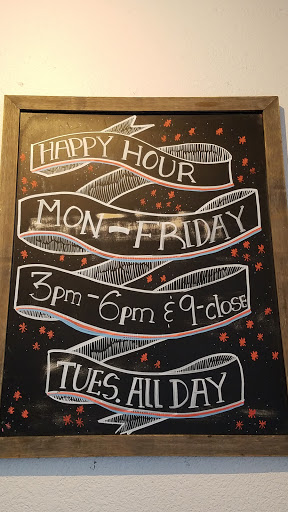 HAPPY HOUR
MON-FRIDAY
3pm-6pm & 9-close
TUES. ALL DAY